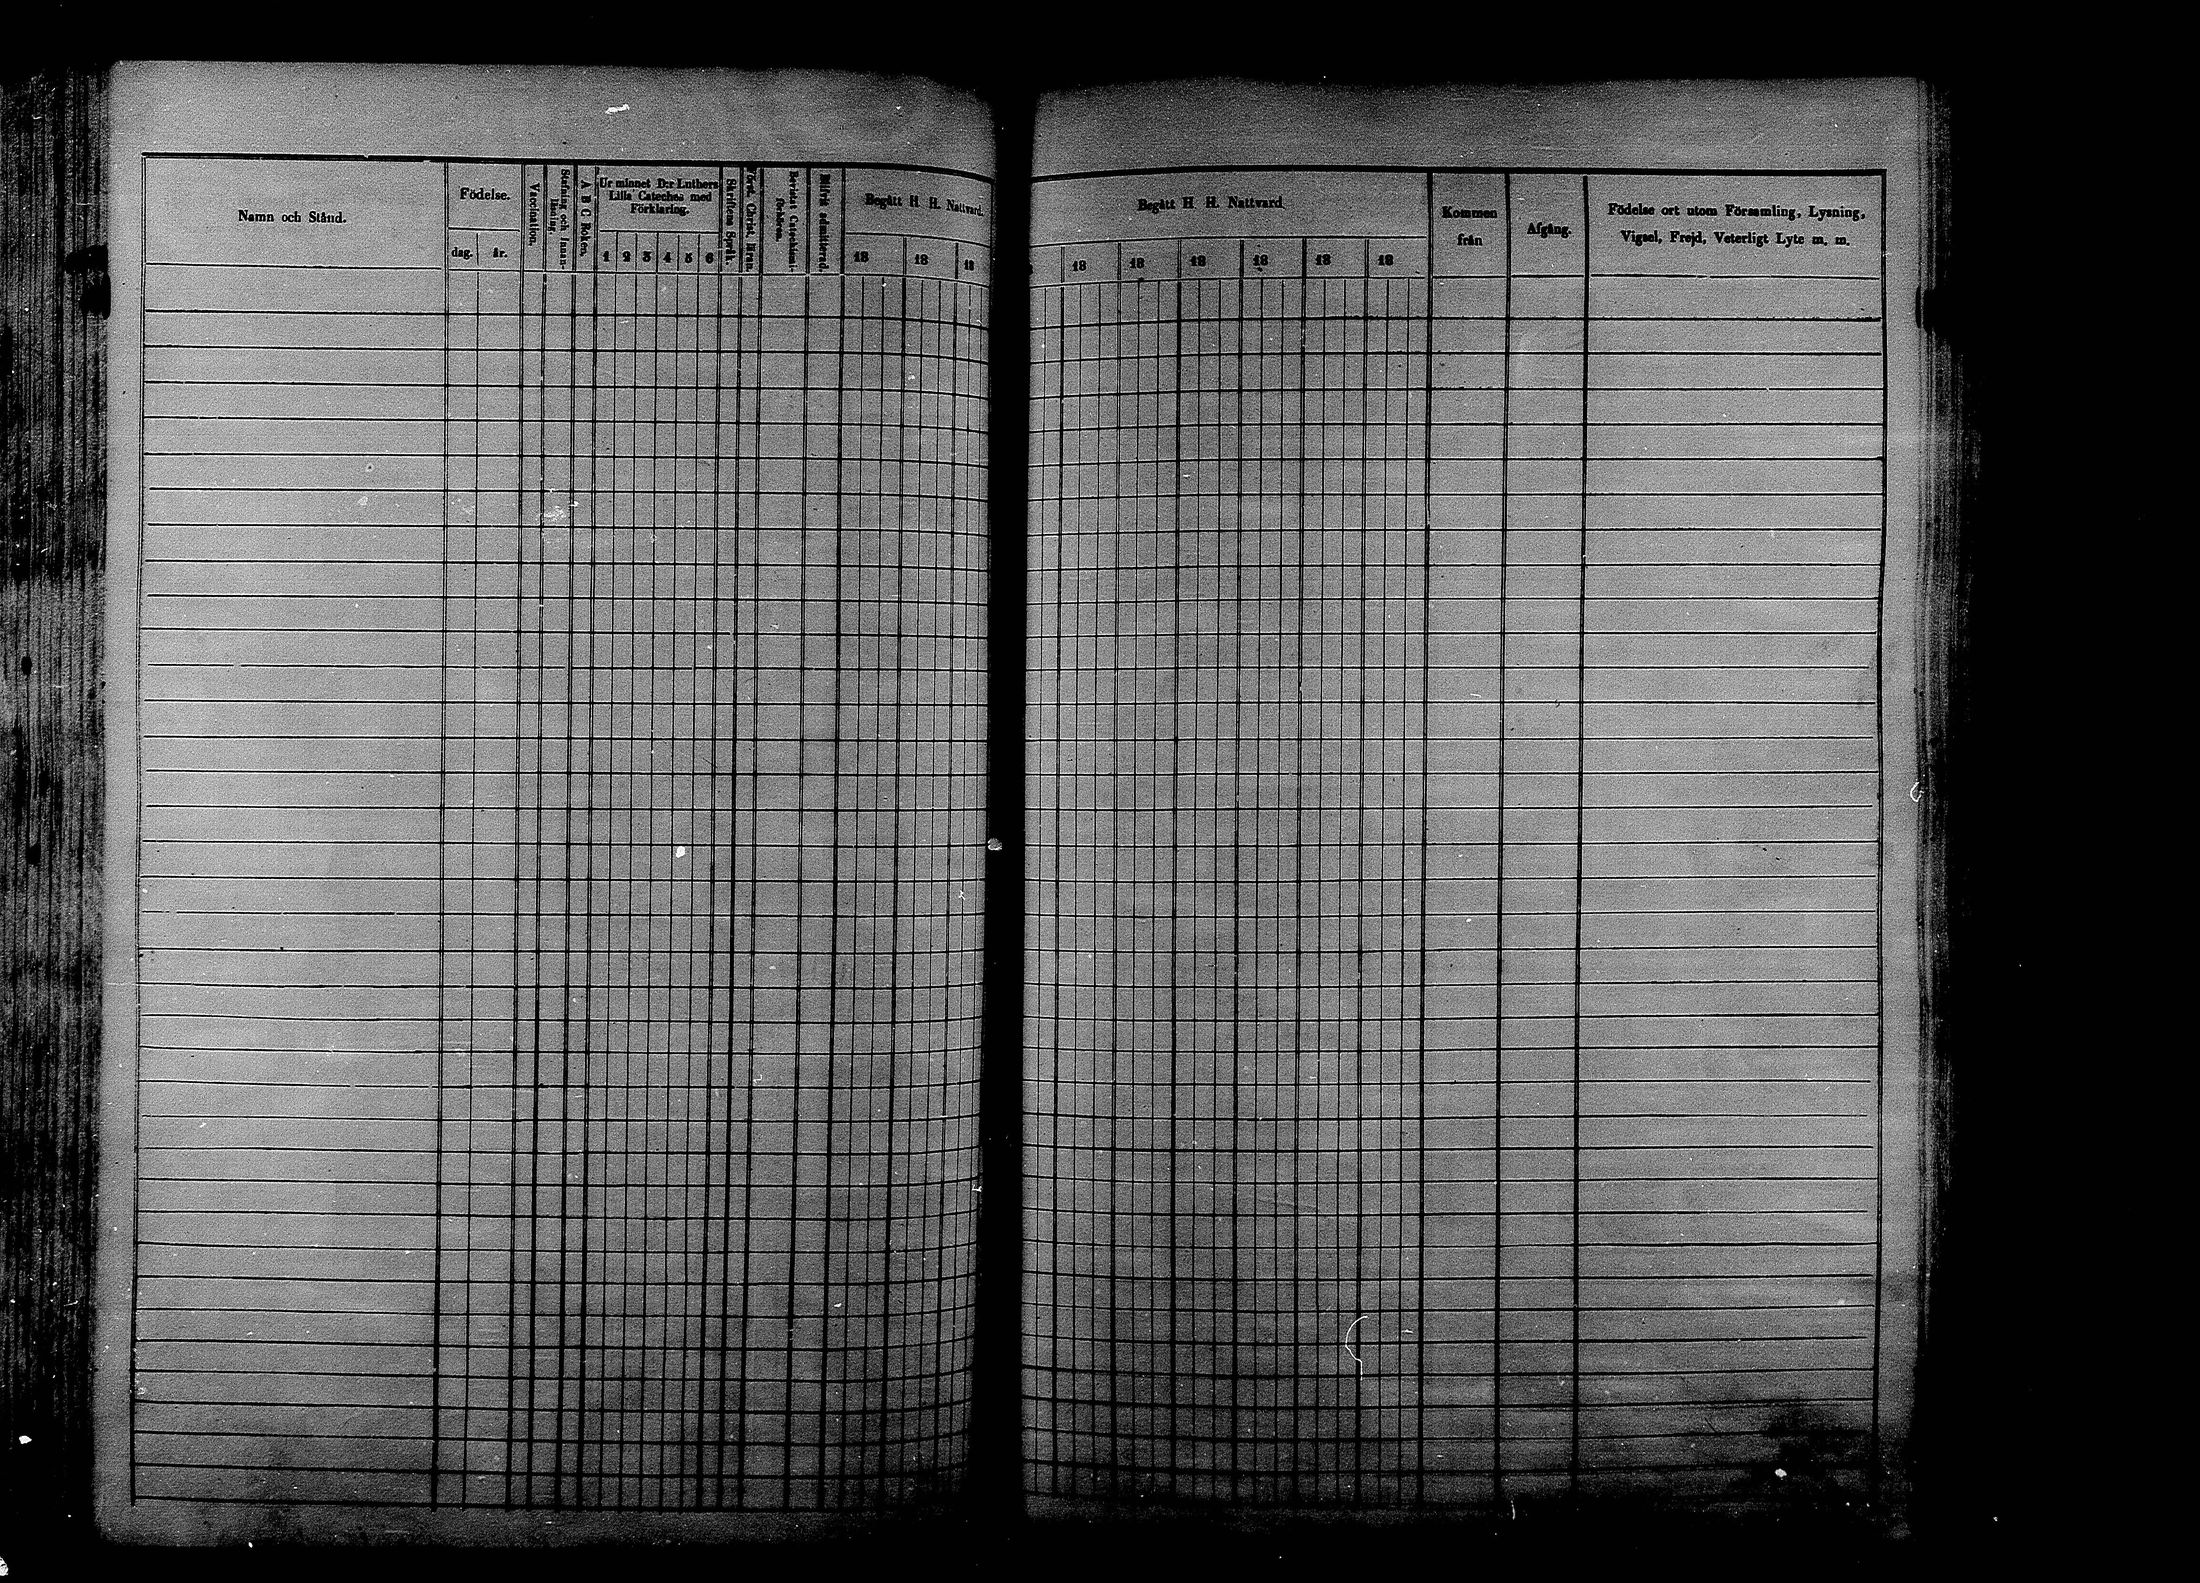 Namn och Stånd.
Födelse.
dag.
år.
Vaccination.
Stafning och Innan-
läsning.
A B C Boken.
Ur minnet D:r Luthers
Lilla Cateches med
Förklaring.
1 2 3 4 5 6
Skriftens Språk.
Bevistat Catechismi-
förhören.
admitterad.
Begått H. H. Nattvard.
18 18 18
Begått H. H. Nattvard.
18 18 18 18 18 18
Kommen
från
Afgång.
Födelse ort utom Församling, Lysning,
Vigsel, Frejd, Veterligt Lyte m. m.